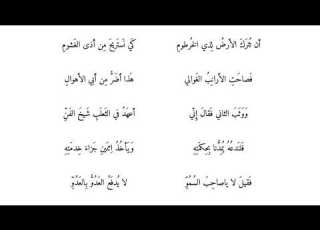 أن تُترَكَ الأرضُ لِذي الخُرطومِ كَي نَستَريحَ مِن أذى الغَشومِ
فَصاحَتِ الأرانِبُ الغَوالي هَذا أضَرُّ مِن أبي الأهوالِ
وَوَثَبَ الثاني فَقالَ إنّي أعهَدُ في الثَعلَبِ شَيخَ الفَنِّ
فَلنَدعُهُ يُمِدُّنا بِحِكمَتِه وَيَأخُذُ اِثنَينِ جَزاءَ خِدمَتِه
فَقيلَ لا ياصاحِبَ السُمُوِّ لا يُدفَعُ العَدُوُّ بِالعَدُوِّ